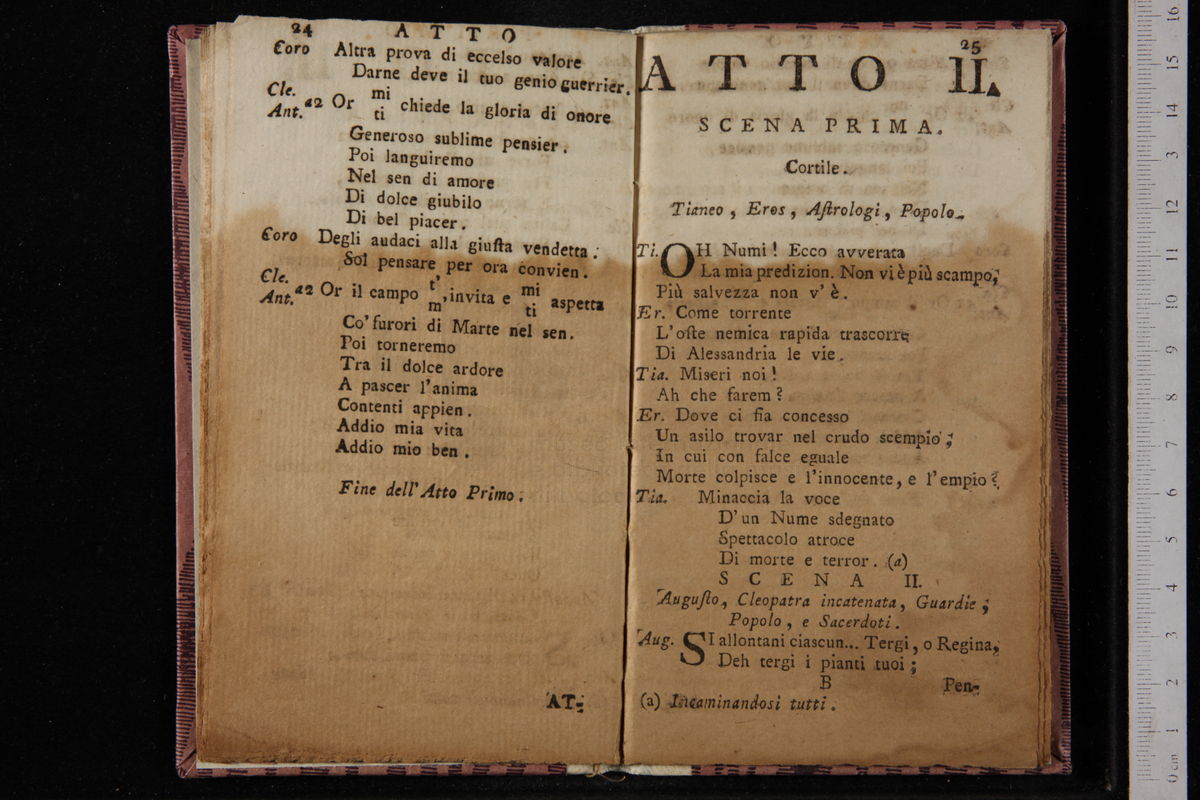 24
ATTO
Coro Altra prova di eccelso valore
Darne deve il tuo genio guerrier.
Cle. mi
Ant. a2 Or ti chiede la gloria di onore
Generoso sublime pensier.
Poi languiremo
Nel sen di amore
Di dolce giubilo
Di bel piacer.
Coro Degli audaci alla giuſta vendetta:
Sol pensare per ora convien.
Cle. t' mi
Ant. a2 Or il campo m', invita e ti aspetta
Co' furori di Marte nel sen.
Poi torneremo
Tra il dolce ardore
A pascer l'anima
Contenti appien.
Addio mia vita
Addio mio ben.
Fine dell'Atto Primo.
AT-
25
ATTO II.
SCENA PRIMA.
Cortile.
Tianeo, Eros, Aſtrologi, Popolo.
Ti. OH Numi! Ecco avverata
La mia predizion. Non vi è più scampo,
Più salvezza non v'è.
Er. Come torrente
L'oſte nemica rapida trascorre
Di Alessandria le vie.
Tia. Miseri noi!
Ah che farem?
Er. Dove ci fia concesso
Un asilo trovar nel crudo scempio;
In cui con falce eguale
Morte colpisce e l'innocente, e l'empio?
Tia. Minaccia la voce
D'un Nume sdegnato
Spettacolo atroce
Di morte e terror. (a)
SCENA II.
Auguſto, Cleopatra incatenata, Guardie;
Popolo, e Sacerdoti.
Aug. SI allontani ciascun... Tergi, o Regina,
Deh tergi i pianti tuoi;
B Pen-
(a) Incaminandosi tutti.
0 cm 1 2 3 4 5 6 7 8 9 10 11 12 13 14 15 16